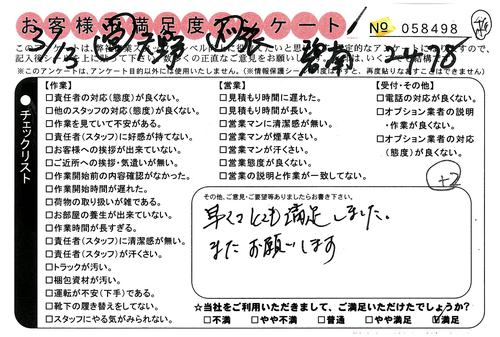 お客様不満足度アンケート!
No 058498
3/13
2-4 18
記入後シールを上に貼って下さい。
(※このアンケートは、アンケート目的以外には使用いたしません。)(※情報保護シールは一度はがすと、再度貼りなおすことはできません)
●チェックリスト
【作業】
□責任者の対応(態度)が良くない。
□他のスタッフの対応(態度)が良くない。
□作業を見ていて不安がある。
□責任者(スタッフ)に好感が持てない。
□お客様への挨拶が出来ていない。
□ご近所への挨拶・気遣いが無い。
□作業開始前の内容確認がなかった。
□作業開始時間が遅れた。
□荷物の取り扱いが雑である。
□お部屋の養生が出来ていない。
□作業時間が長すぎる。
□責任者(スタッフ)に清潔感が無い。
□責任者(スタッフ)が汗さい。
□トラックが汚い。
□梱包資材が汚い。
□運転が不安(下手)である。
□靴下の履き替えをしてない。
□スタッフにやる気がみられない。
【営業】
□見積もり時間に遅れた。
□見積もり時間が長い。
□営業マンに清潔感が無い。
□営業マンが煙草くさい。
□営業マンが汗くさい。
□営業態度が良くない。
□営業の説明と作業が一致してない。
【受付・その他】
□電話の対応が良くない。
□オプション業者の説明
・作業が良くない。
□オプション業者の対応
(態度)が良くない。
+2
その他、ご意見・ご要望等ありましたらお書き下さい。
早くてとても満足しました。
またお願いします
☆当社をご利用いただきまして、ご満足いただけたでしょうか?
□不満 □やや不満 □普通 □やや満足 ☑満足